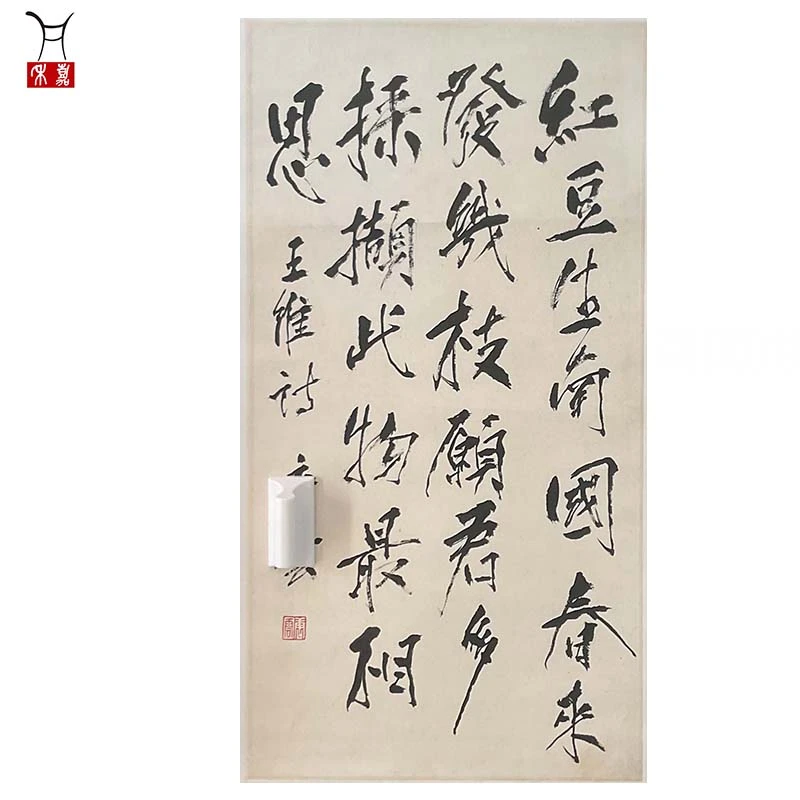 紅豆生南國春來
發幾枝願君多
採擷此物最相
思
王維詩
禾嘉